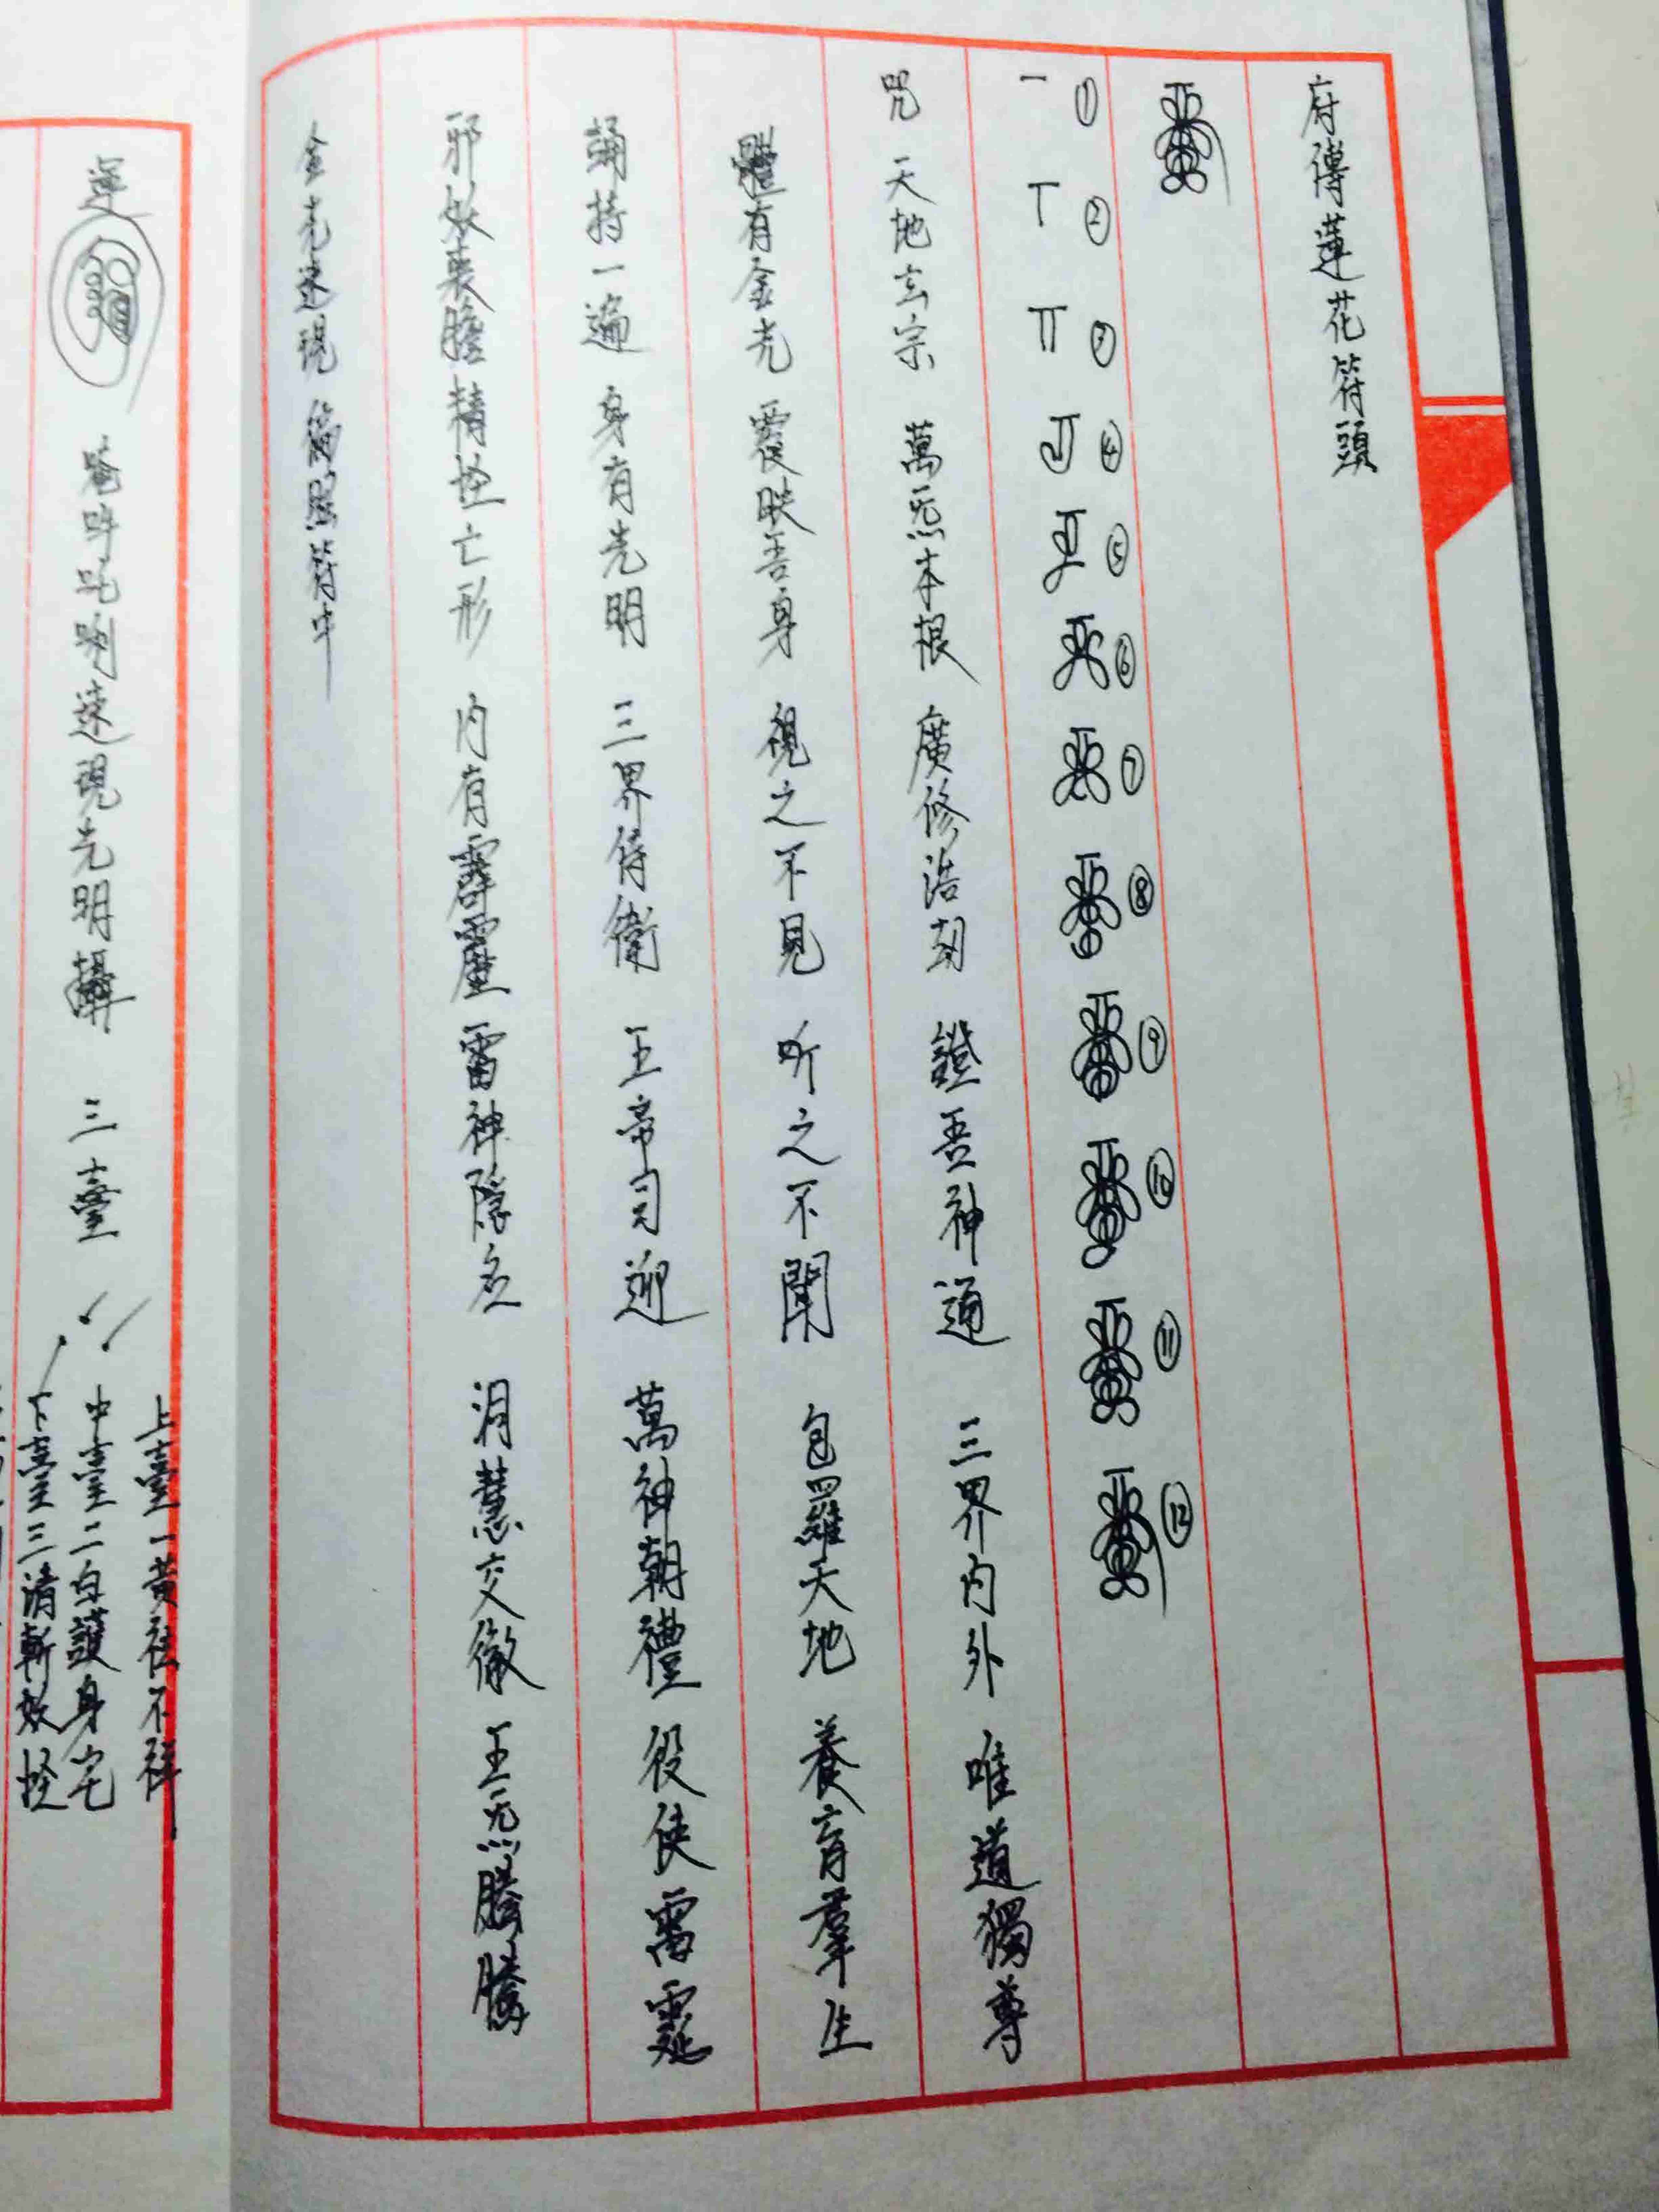 府傳蓮花符頭
① ② ③ ④ ⑤ ⑥ ⑦ ⑧ ⑨ ⑩ ⑪ ⑫
咒 天地玄宗 萬炁本根 廣修浩劫 證吾神通 三界內外 唯道獨尊
體有金光 覆映吾身 視之不見 听之不聞 包羅天地 養育羣生
誦持一遍 身有光明 三界侍衛 五帝司迎 萬神朝禮 役使雷霆
邪妖喪膽 精怪亡形 內有霹靂 雷神隱名 洞慧交徹 五炁騰騰
金光速現 符中
運
速現光明 三臺
上臺一黃祛不祥
中臺二白護身宅
下臺三清斬妖怪